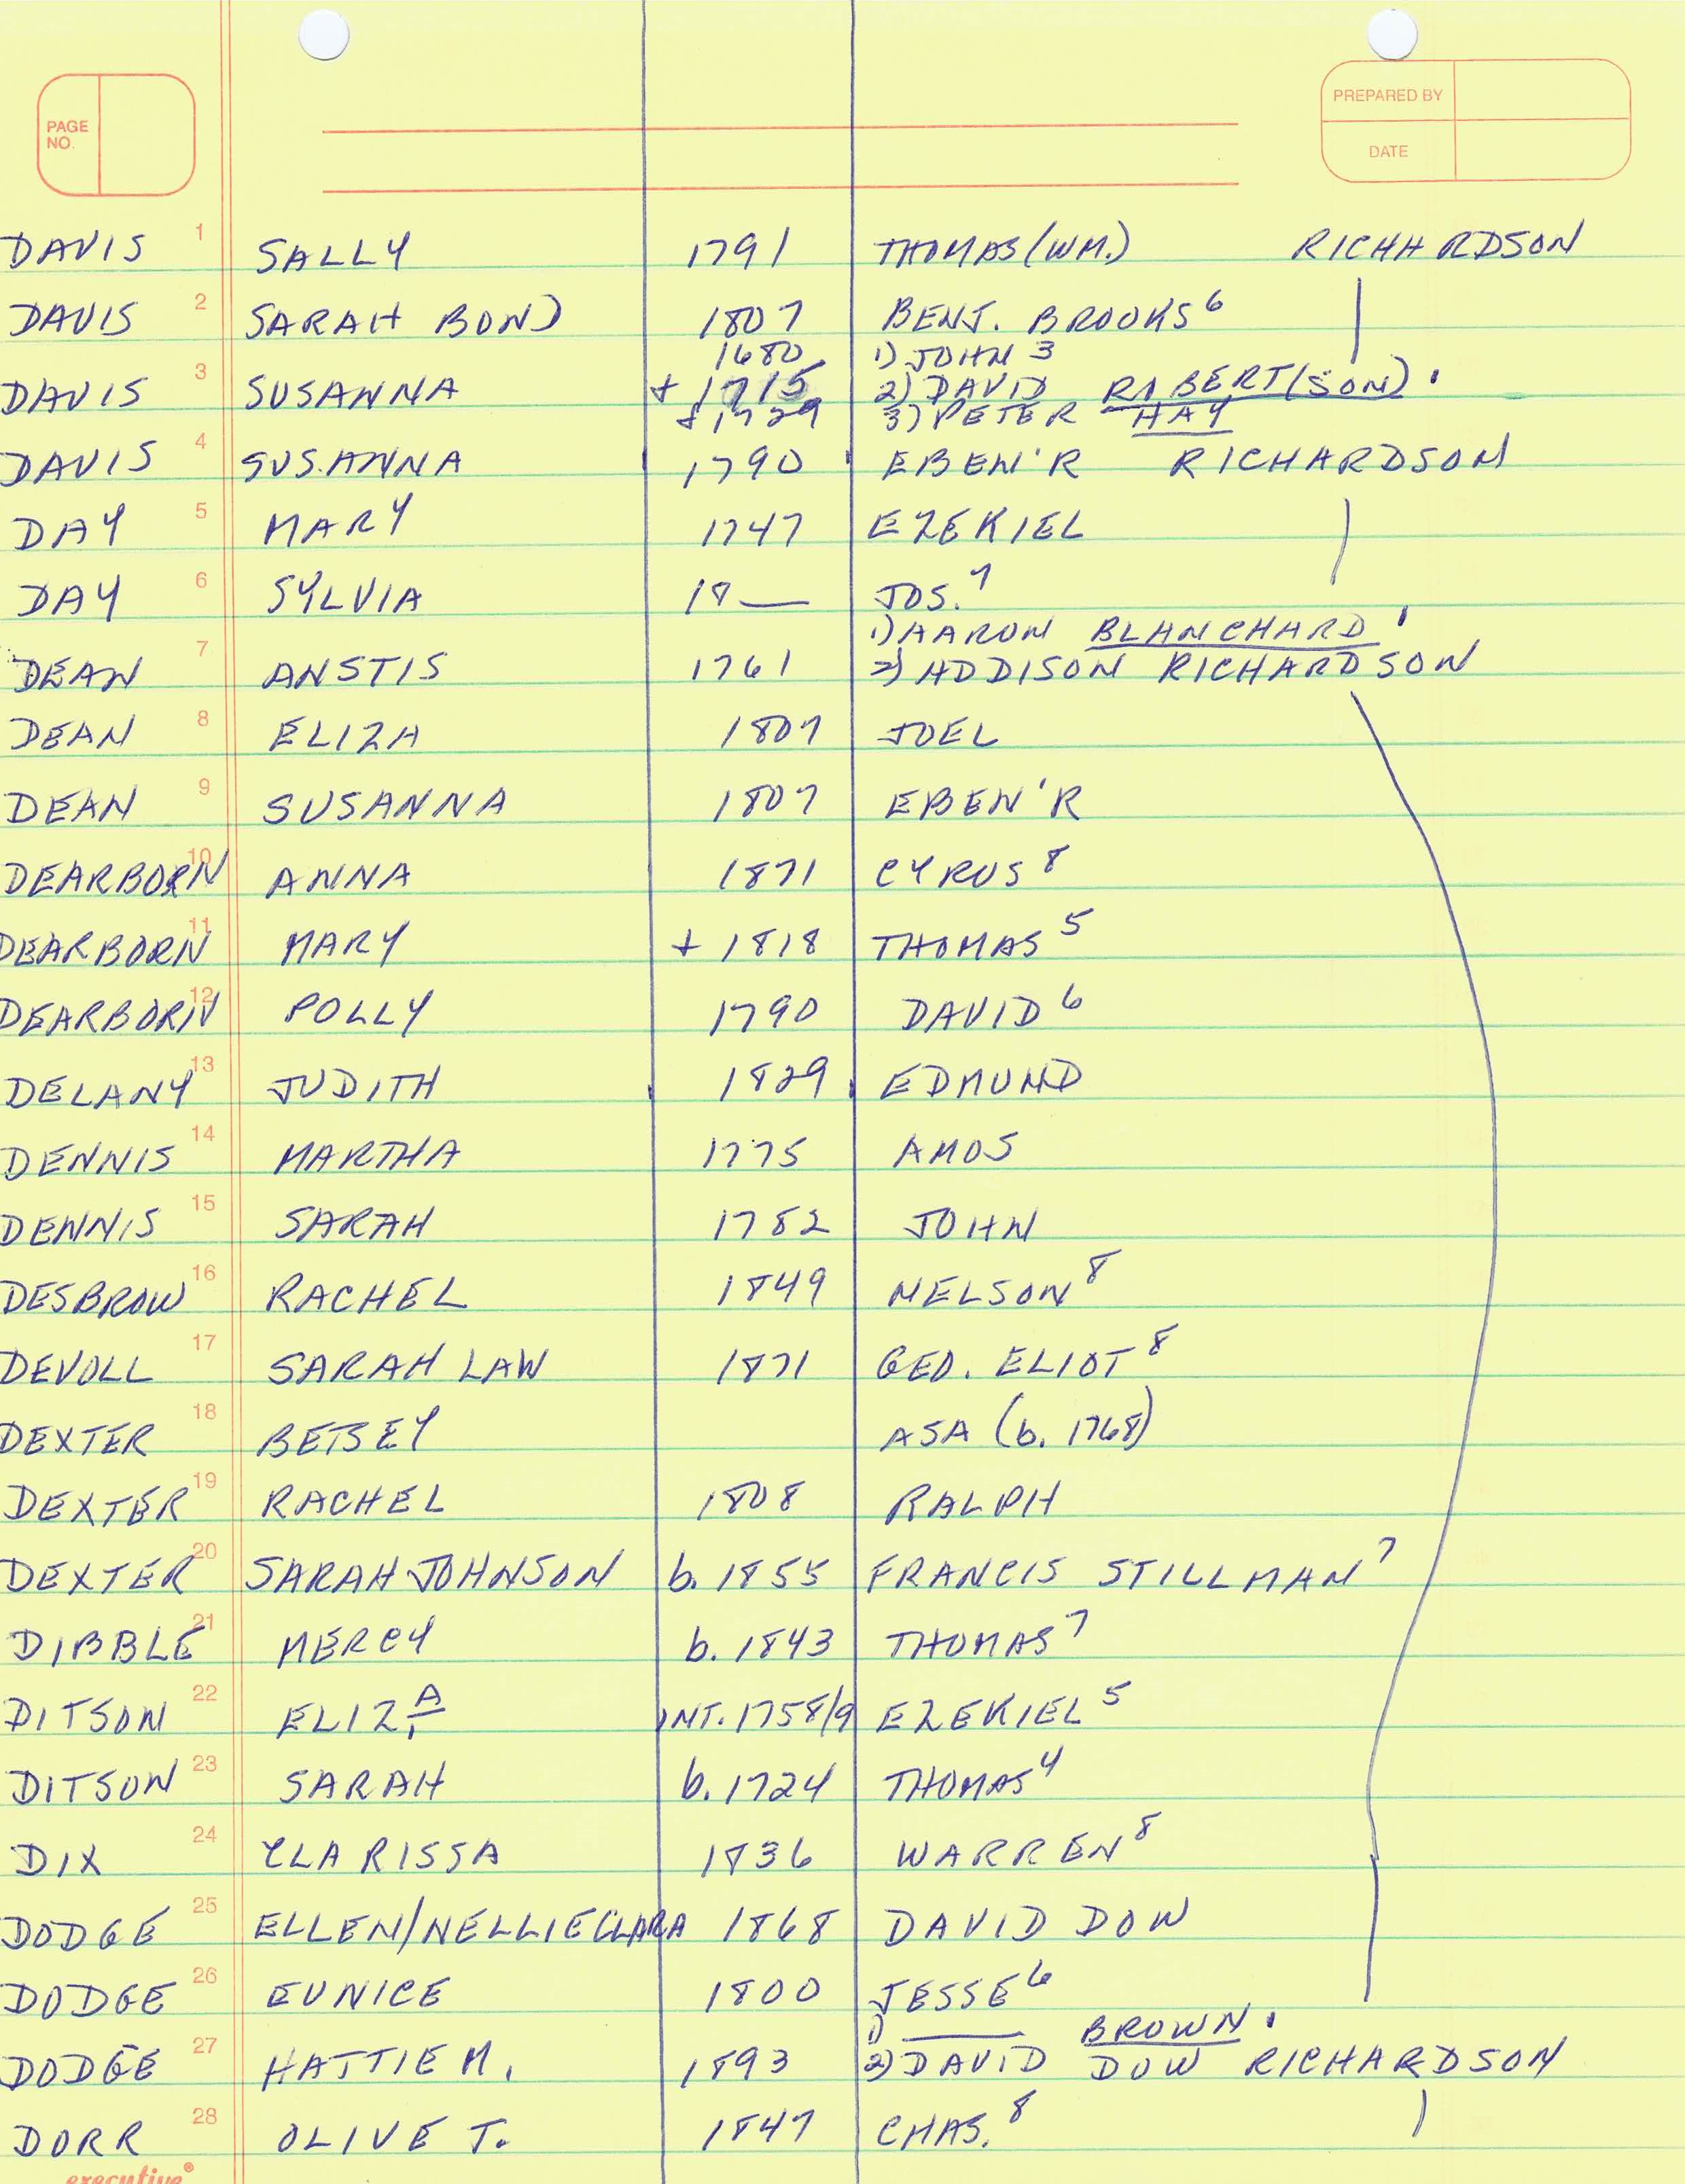 PAGE NO.
PREPARED BY
DATE
DAVIS 1 SALLY 1791 THOMAS (WM.) RICHHARDSON
DAVIS 2 SARAH BOND 1807 BENJ. BROOKS 6
1680 1) JOHN 3
DAVIS 3 SUSANNA + 1715 2) DAVID RABERT(SON).
+ 1729 3) PETER HAY
DAVIS 4 SUSANNA 1790 EBEN'R RICHARDSON
DAY 5 MARY 1747 EZEKIEL
DAY 6 SYLVIA 18— JOS. 7
1) AARON BLANCHARD
DEAN 7 ANSTIS 1761 2) ADDISON RICHARDSON
DEAN 8 ELIZA 1807 JOEL
DEAN 9 SUSANNA 1807 EBEN'R
DEARBORN 10 ANNA 1871 CYRUS 8
DEARBORN 11 MARY + 1818 THOMAS 5
DEARBORN 12 POLLY 1790 DAVID 6
DELANY 13 JUDITH 1829 EDMUND
DENNIS 14 MARTHA 1775 AMOS
DENNIS 15 SARAH 1782 JOHN
DESBROW 16 RACHEL 1849 NELSON 8
DEVOLL 17 SARAH LAW 1871 GEO. ELIOT 8
DEXTER 18 BETSEY ASA (b. 1768)
DEXTER 19 RACHEL 1808 RALPH
DEXTER 20 SARAH JOHNSON b. 1855 FRANCIS STILLMAN 7
DIBBLE 21 MERCY b. 1843 THOMAS 7
DITSON 22 ELIZA INT. 1758/9 EZEKIEL 5
DITSON 23 SARAH b. 1724 THOMAS 4
DIX 24 CLARISSA 1836 WARREN 8
DODGE 25 ELLEN/NELLIE CLARA 1868 DAVID DOW
DODGE 26 EUNICE 1800 JESSE 6
1) —— BROWN.
DODGE 27 HATTIE M. 1893 2) DAVID DOW RICHARDSON
DORR 28 OLIVE T. 1847 CHAS. 8
executive®